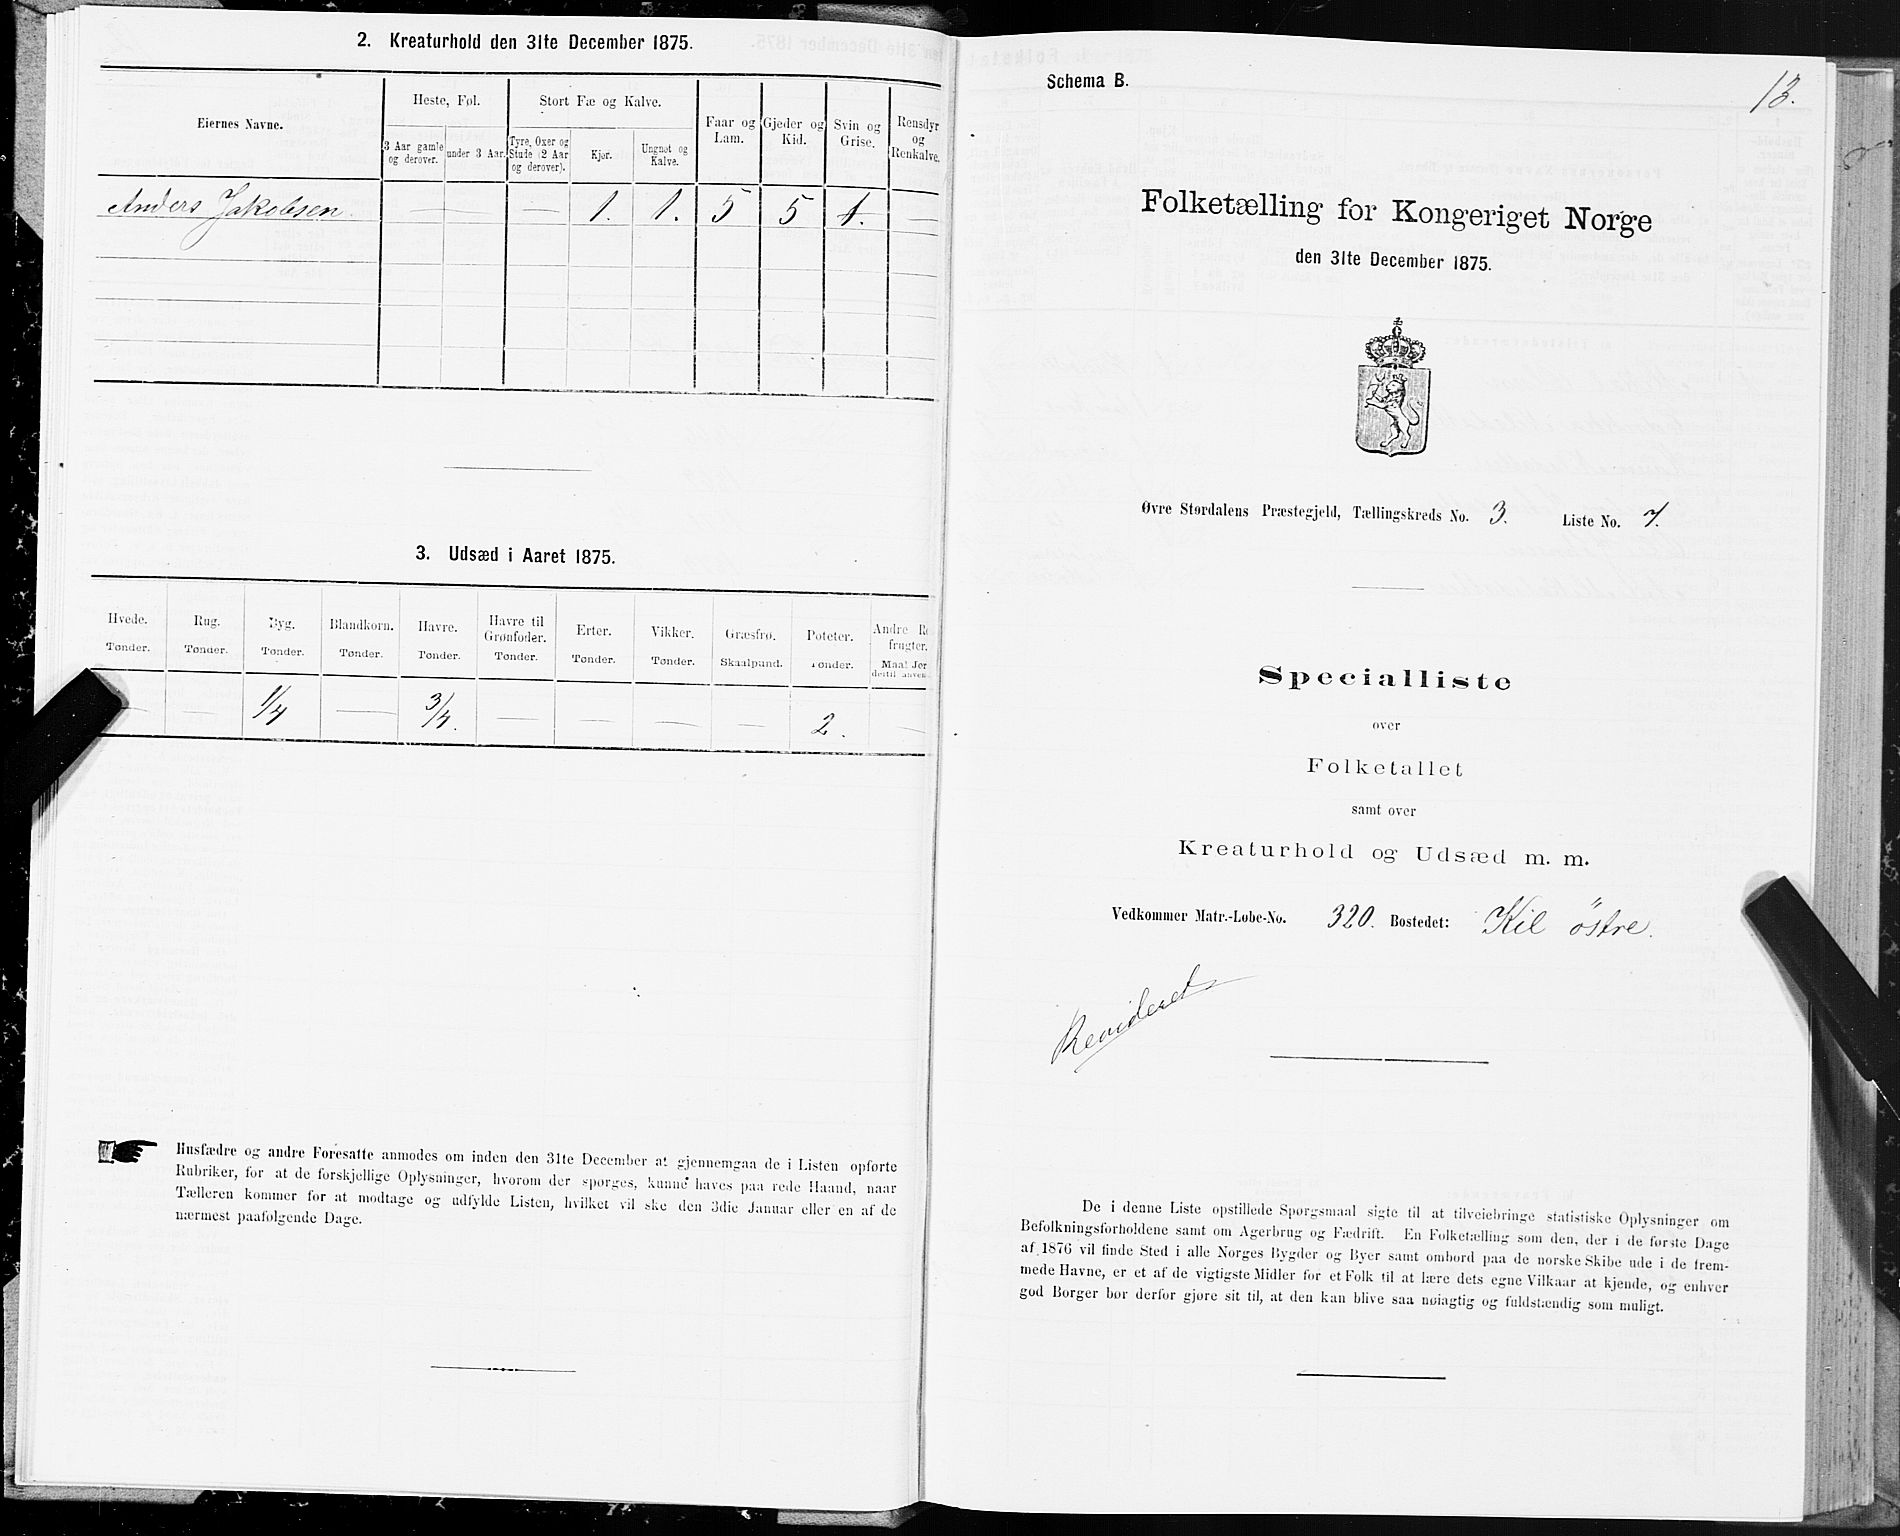 2. Kreaturhold den 31te December 1875.
Eiernes Navne.
Heste, Føl.
Stort Fæ og Kalve.
Faar og Lam.
Gjeder og Kid.
Svin og Grise.
Rensdyr og Renkalve.
3 Aar gamle og derover.
under 3 Aar.
Tyre, Oxer og Stude (2 Aar og derover).
Kjør.
Ungnøt og Kalve.
Anders Jakobsen. — — — 1. 1. 5 5 1. —
3. Udsæd i Aaret 1875.
Hvede. Rug. Byg. Blandkorn. Havre. Havre til Grønfoder. Erter. Vikker. Græsfrø. Poteter. Andre
frugter.
Tønder. Tønder. Tønder. Tønder. Tønder. Tønder. Tønder. Tønder. Skaalpund. Tønder. Maal
— — 1/4 — 3/4. — — — — 2. —
Husfædre og andre Foresatte anmodes om inden den 31te December at gjennemgaa de i Listen opførte
Rubriker, for at de forskjellige Oplysninger, hvorom der spørges, kunne haves paa rede Haand, naar
Tælleren kommer for at modtage og udfylde Listen, hvilket vil ske den 3die Januar eller en af de
nærmest paafølgende Dage.
Schema B.
13.
Folketælling for Kongeriget Norge
den 31te December 1875.
Øvre Stordalens Præstegjeld, Tællingskreds No. 3. Liste No. 7.
Specialliste
over
Folketallet
samt over
Kreaturhold og Udsæd m. m.
Vedkommer Matr.-Løbe-No. 320. Bostedet: Kil östre.
Revideret
De i denne Liste opstillede Spørgsmaal sigte til at tilveiebringe statistiske Oplysninger om
Befolkningsforholdene samt om Agerbrug og Fædrift. En Folketælling som den, der i de første Dage
af 1876 vil finde Sted i alle Norges Bygder og Byer samt ombord paa de norske Skibe ude i de frem-
mede Havne, er et af de vigtigste Midler for et Folk til at lære dets egne Vilkaar at kjende, og enhver
god Borger bør derfor gjøre sit til, at den kan blive saa nøiagtig og fuldstændig som muligt.